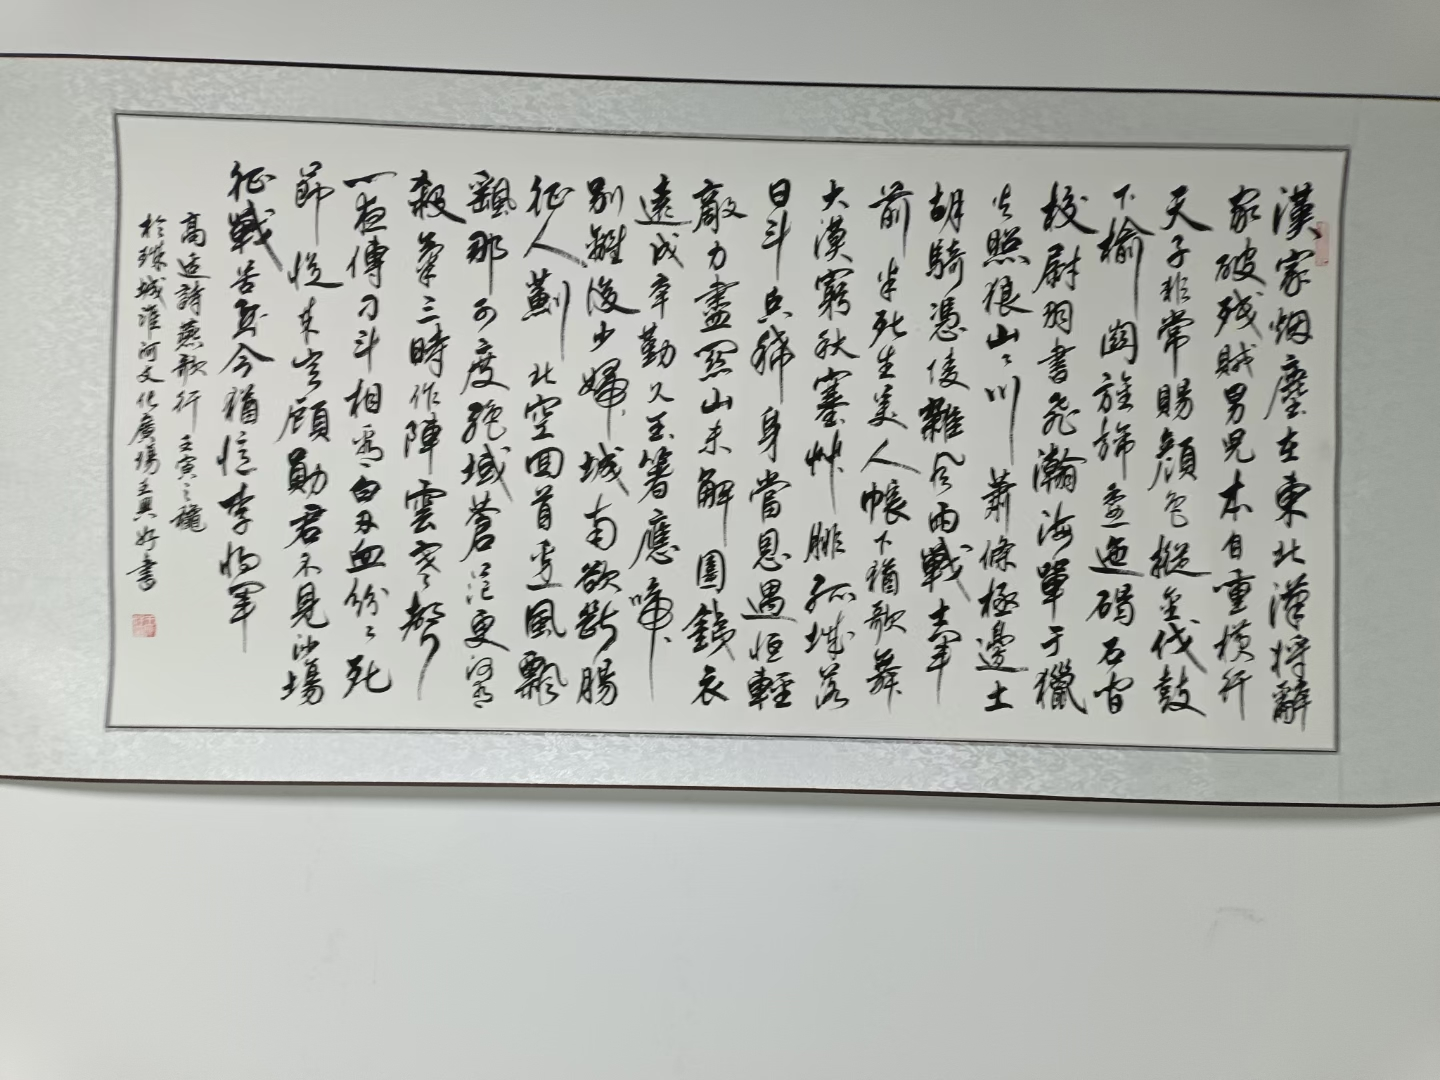 漢家烟塵在東北漢將辭
家破残賊男兒本自重橫行
天子非常賜顏色摐金伐鼓
下榆関旌旆逶迤碣石間
校尉羽書飛瀚海單于獵
火照狼山山川蕭條極邊土
胡騎憑陵雜风雨戰士軍
前半死生美人帳下猶歌舞
大漠窮秋塞草腓孤城落
日斗兵稀身當恩遇恒輕
敵力盡関山未解圍鐵衣
遠戍辛勤久玉箸應啼
別離後少婦城南欲斷腸
征人薊北空回首邊風飄
飄那可度絶域蒼茫更何有
殺氣三時作陣雲寒聲
一夜傳刁斗相看白刃血紛紛死
節從來豈顧勛君不見沙場
征戰苦至今猶憶李將軍
高适詩燕歌行 壬寅之穐
於珠城淮河文化廣場王興好書